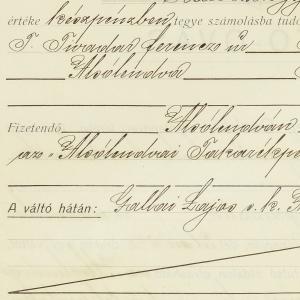 értéke készpénzben tegye számolásba tudó
T. Tivadar Ferencz úr
Alsólendva
Fizetendő Alsólendván
az "Alsólendvai Takarékpé
A váltó hátán: Gallai Lajos s. k.